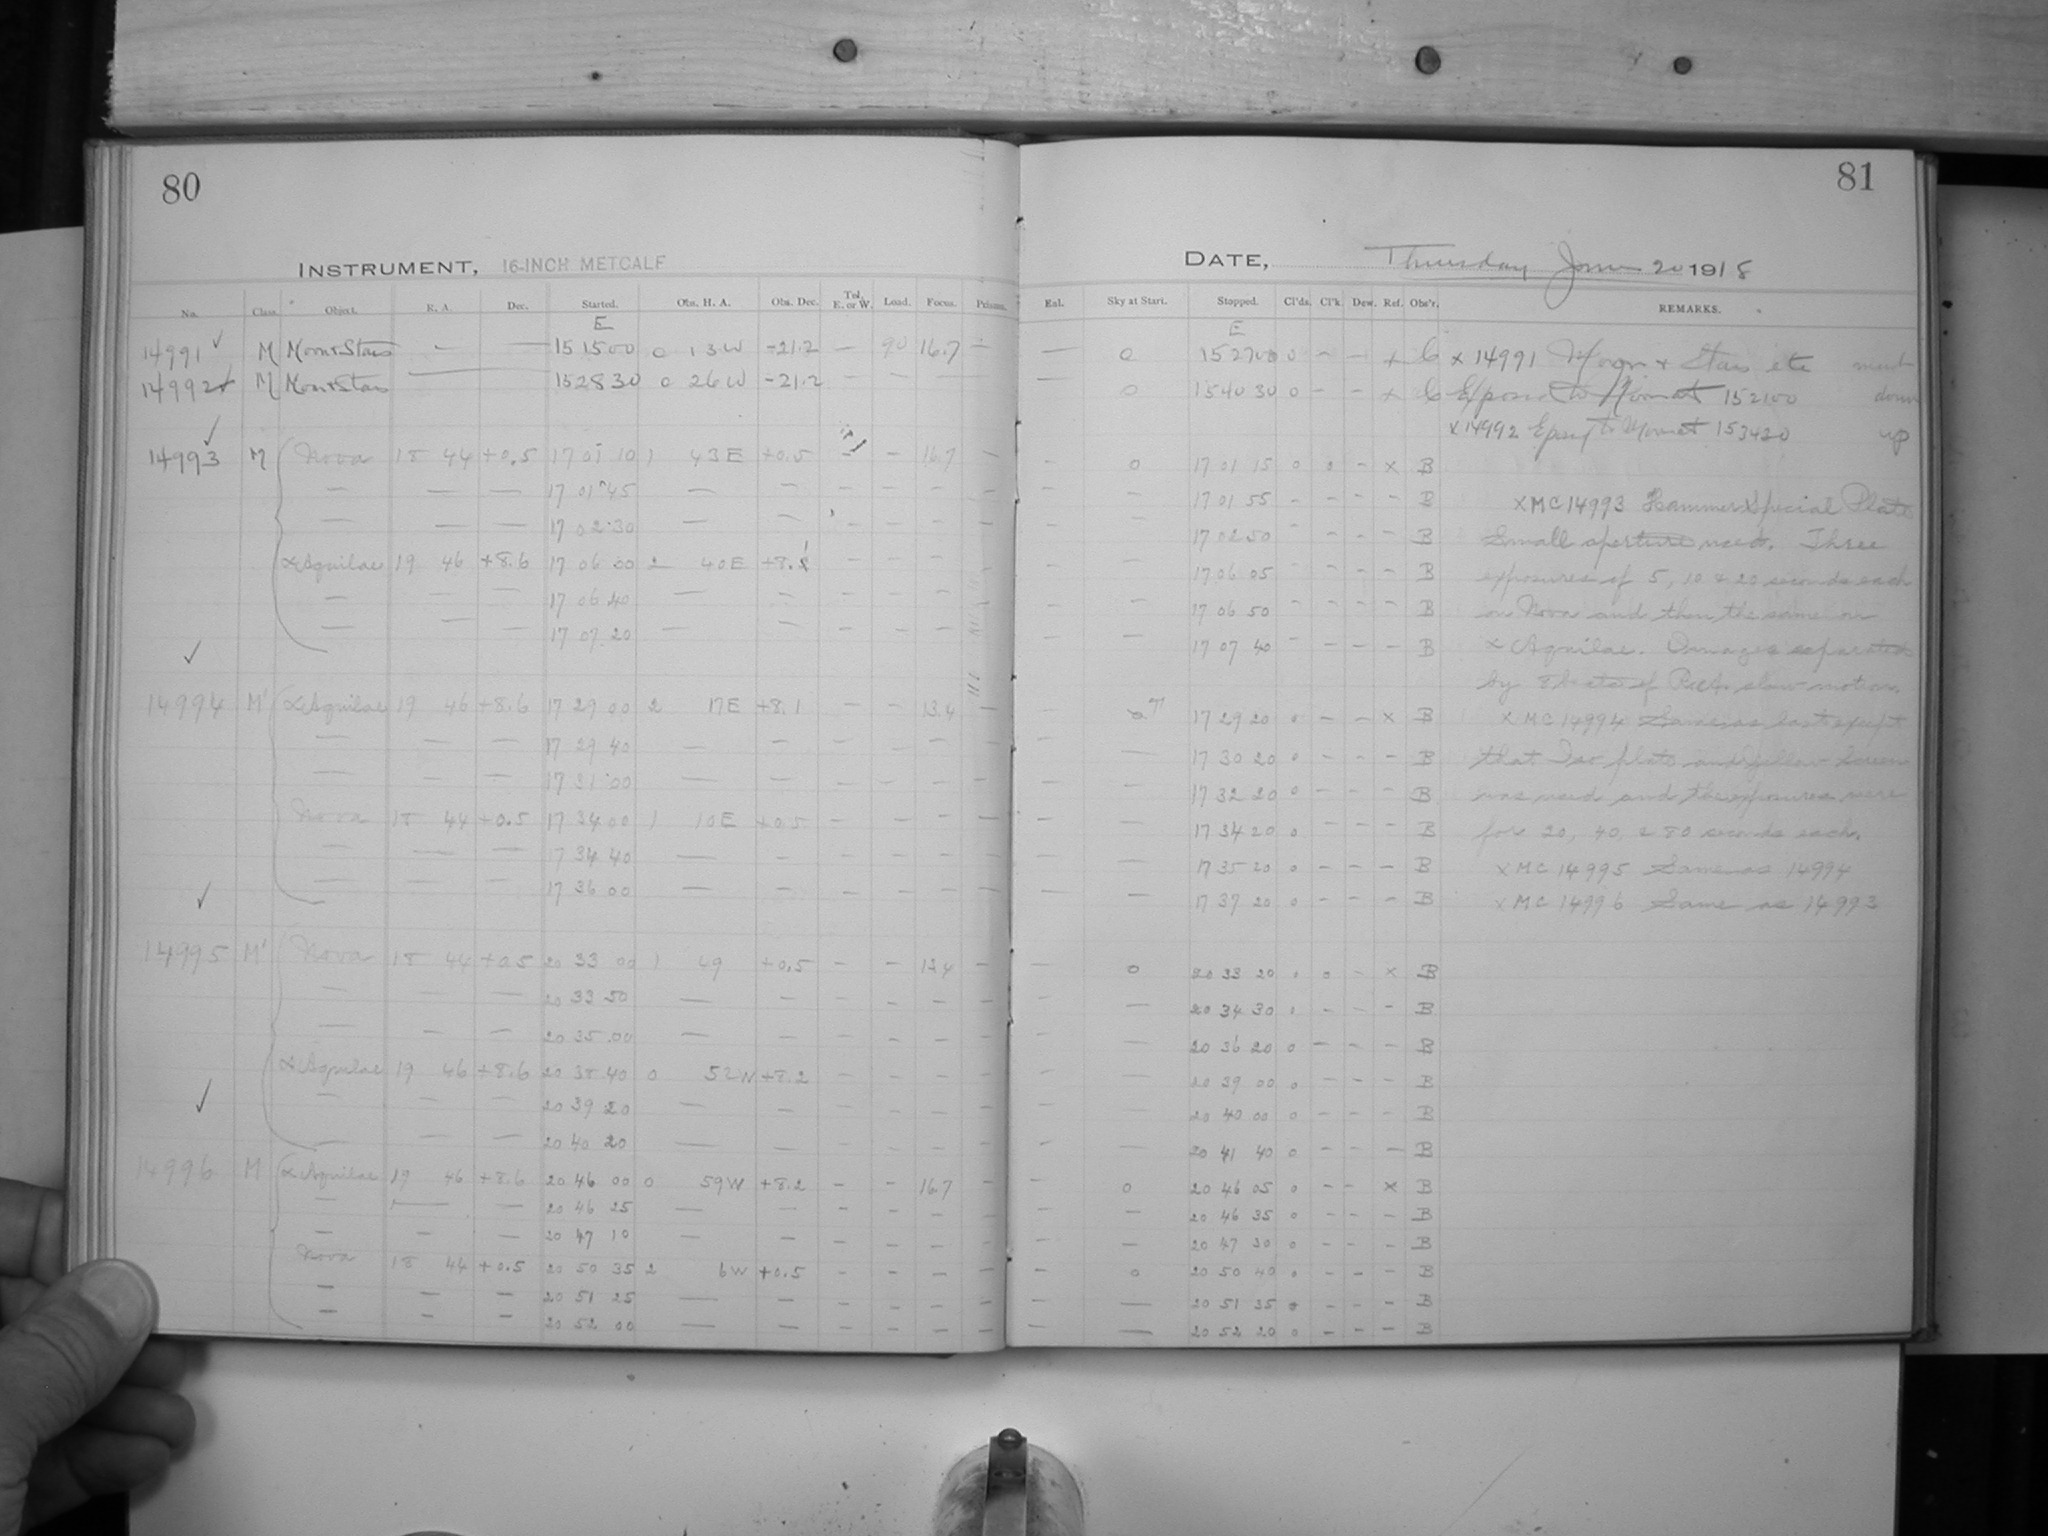 80
INSTRUMENT, 16-INCH METCALF
No. Class. Object. R. A. Dec. Started. Obs. H. A. Obs. Dec. Tel. E. or W. Load. Focus. Prisms.
E
14991 M Moon+Stars — — 15 15 00 0 13W -21.2 — 90 16.7 —
14992 M Moon+Stars — 15 28 30 0 26W -21.2 — —
14993 M Nova 18 44 +0.5 17 01 10 1 43E +0.5 — — 16.7 —
— — — 17 01 45 — — — — — —
— — — 17 02 30 — — — — — —
α Aquilae 19 46 +8.6 17 06 00 2 40E — — — —
— — — 17 06 40 — — — — —
— — — 17 07 20 — — — — —
14994 M' α Aquilae 19 46 +8.6 17 29 00 2 17E +8.1 — — 13.4 —
— — — 17 29 40 — — — — — —
— — — 17 31 00 — — — — — —
Nova 18 44 +0.5 17 34 00 1 10E +0.5 — — — —
— — — 17 34 40 — — — — — —
— — — 17 36 00 — — — — — —
14995 M' Nova 18 44 +0.5 20 33 00 1 49 +0.5 — — 13.4 —
— — — 20 33 50 — — — — — —
— — — 20 35 00 — — — — — —
α Aquilae 19 46 +8.6 20 38 40 0 52W +8.2 — — — —
— — — 20 39 20 — — — — — —
— — — 20 40 20 — — — — — —
14996 M α Aquilae 19 46 +8.6 20 46 00 0 59W +8.2 — — 16.7 —
— — — 20 46 25 — — — — — —
— — — 20 47 10 — — — — — —
Nova 18 44 +0.5 20 50 35 2 6W +0.5 — — — —
— — — 20 51 25 — — — — — —
— — — 20 52 00 — — — — — —
81
DATE, Thursday June 20 1918
Eal. Sky at Start. Stopped. Cl'ds. Cl'k. Dew. Ref. Obs'r. REMARKS.
E
— 0 15 27 00 0 — — x C x 14991 Moon + Stars etc
— 0 15 40 30 0 — — x C Exposed to Moon at 15 21 00 down
x 14992 to Moon at 15 34 20 up
— 0 17 01 15 0 0 — x B
— — 17 01 55 — — — — B x MC 14993 Hammer Special Plate
— — 17 02 50 — — — — B Small aperture used. Three
— — 17 06 05 — — — — B exposures of 5, 10 + 20 seconds each
— — 17 06 50 — — — — B on Nova and then the same on
— — 17 07 40 — — — — B α Aquilae. Images separated
by 8 of slow motion.
— 17 29 20 0 — — x B x MC 14994 Same as last except
— — 17 30 20 0 — — — B that Iso plate and yellow screen
— — 17 32 20 0 — — — B was used and the exposures were
— — 17 34 20 0 — — — B for 20, 40, + 80 seconds each.
— — 17 35 20 0 — — — B x MC 14995 Same as 14994
— — 17 37 20 0 — — — B x MC 14996 Same as 14993
— 0 20 33 20 0 0 — x B
— — 20 34 30 0 — — — B
— — 20 36 20 0 — — — B
— — 20 39 00 0 — — — B
— — 20 40 00 0 — — — B
— — 20 41 40 0 — — — B
— 0 20 46 05 0 — — x B
— — 20 46 35 0 — — — B
— — 20 47 30 0 — — — B
— 0 20 50 40 0 — — — B
— — 20 51 35 0 — — — B
— — 20 52 20 0 — — — B